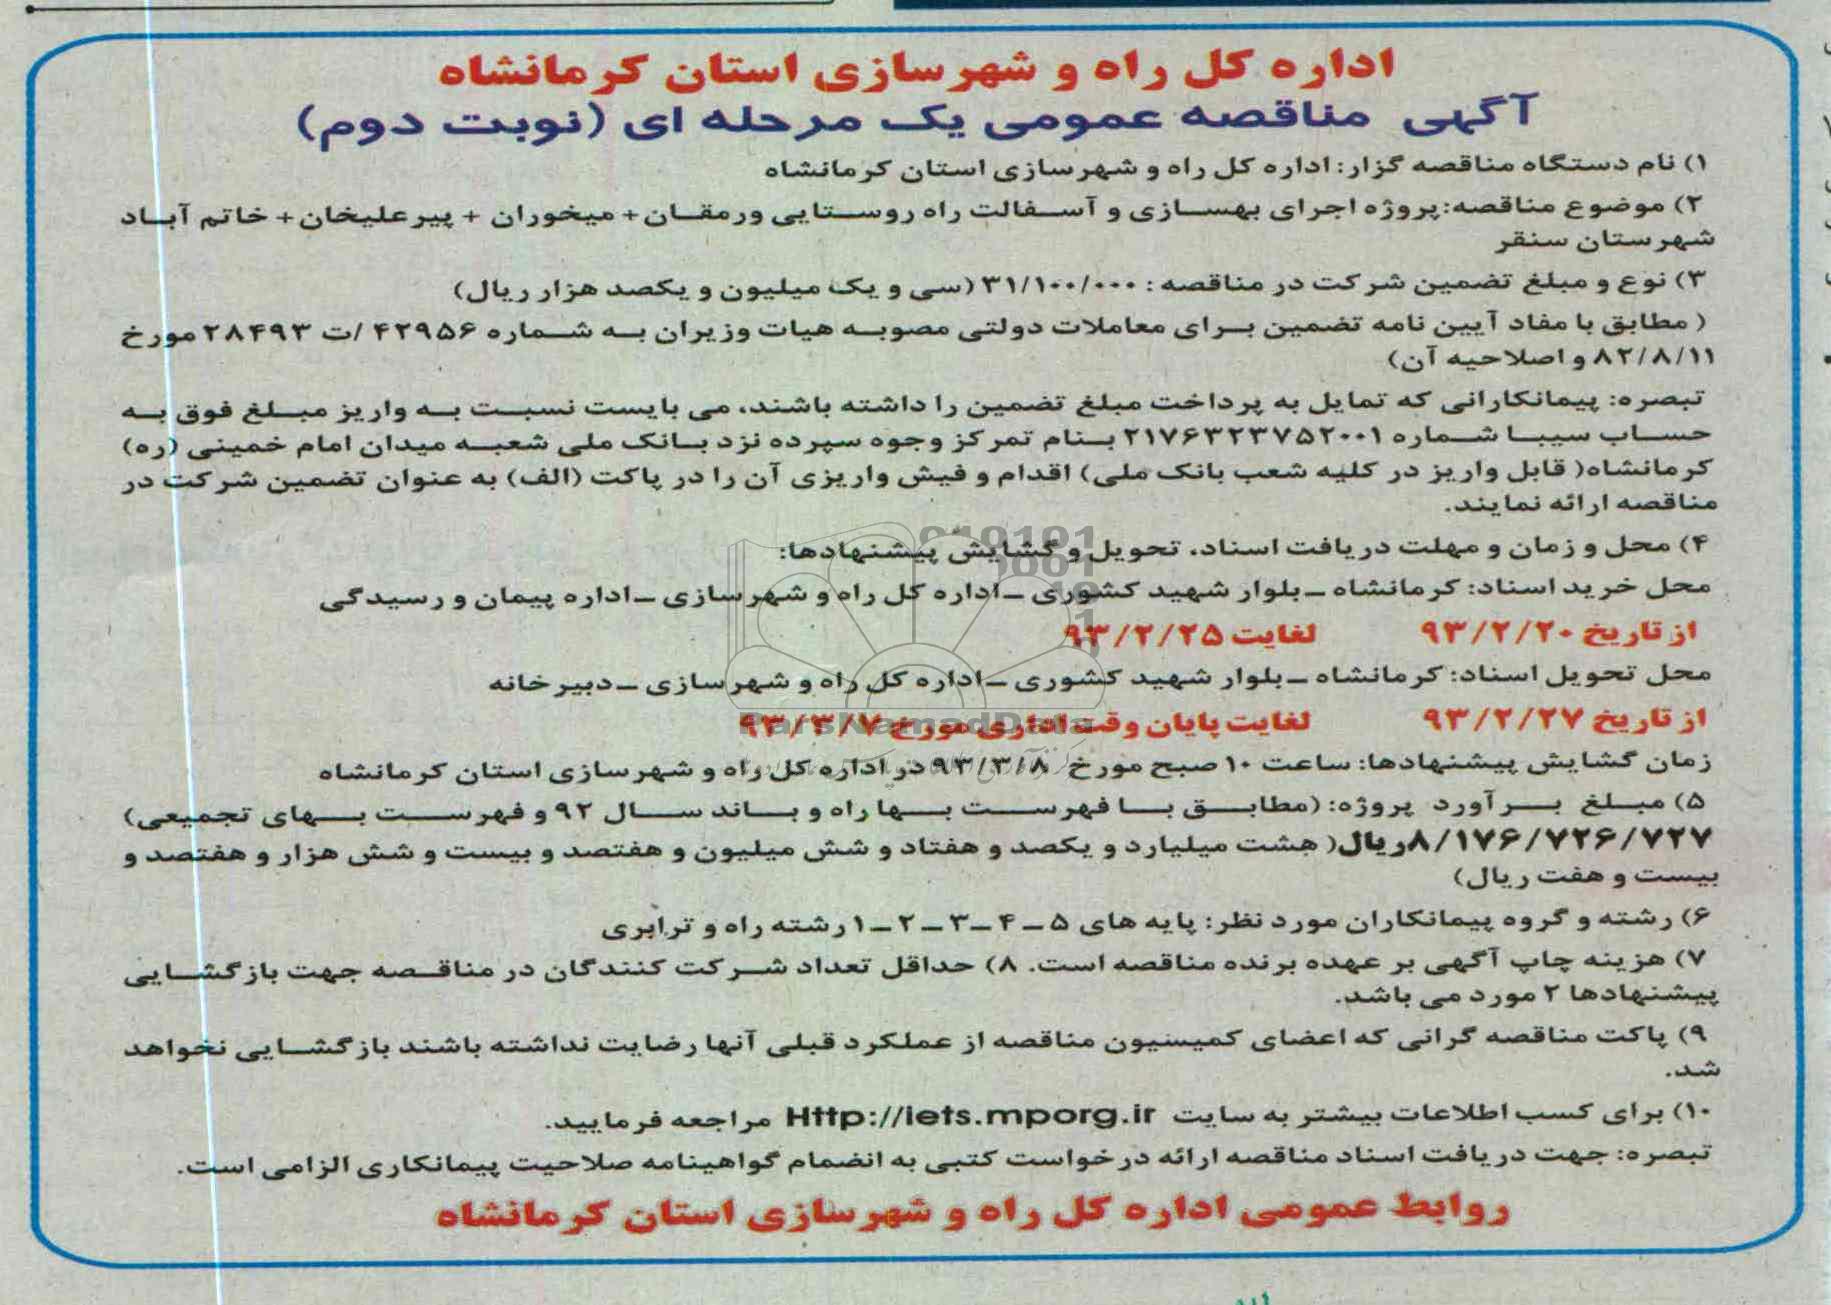 اداره کل راه و شهرسازی استان کرمانشاه
آگهی مناقصه عمومی یک مرحله ای (نوبت دوم)
۱) نام دستگاه مناقصه گزار: اداره کل راه و شهرسازی استان کرمانشاه
۲) موضوع مناقصه:پروژه اجرای بهسازی و آسفالت راه روستایی ورمقان+ میخوران + پیرعلیخان+ خاتم آباد
شهرستان سنقر
۳) نوع و مبلغ تضمین شرکت در مناقصه : ۳۱/۱۰۰/۰۰۰ (سی و یک میلیون و یکصد هزار ریال)
( مطابق با مفاد آیین نامه تضمین برای معاملات دولتی مصوبه هیات وزیران به شماره ۴۲۹۵۶ /ت ۲۸۴۹۳ مورخ
۸۲/۸/۱۱ و اصلاحیه آن)
تبصره: پیمانکارانی که تمایل به پرداخت مبلغ تضمین را داشته باشند، می بایست نسبت به واریز مبلغ فوق به
حساب سیبا شماره ۲۱۷۶۳۲۳۷۵۲۰۰۱ بنام تمرکز وجوه سپرده نزد بانک ملی شعبه میدان امام خمینی (ره)
کرمانشاه( قابل واریز در کلیه شعب بانک ملی) اقدام و فیش واریزی آن را در پاکت (الف) به عنوان تضمین شرکت در
مناقصه ارائه نمایند.
۴) محل و زمان و مهلت دریافت اسناد، تحویل و گشایش پیشنهادها:
محل خرید اسناد: کرمانشاه –بلوار شهید کشوری –اداره کل راه و شهرسازی –اداره پیمان و رسیدگی
از تاریخ ۹۳/۲/۲۰ لغایت ۹۳/۲/۲۵
محل تحویل اسناد: کرمانشاه –بلوار شهید کشوری –اداره کل راه و شهرسازی –دبیرخانه
از تاریخ ۹۳/۲/۲۷ لغایت پایان وقت اداری مورخ ۹۳/۳/۷
ParsNamadData
زمان گشایش پیشنهادها: ساعت ۱۰ صبح مورخ ۹۳/۳/۸ در اداره کل راه و شهرسازی استان کرمانشاه
۵) مبلغ برآورد پروژه: (مطابق با فهرست بها راه و باند سال ۹۲ و فهرست بهای تجمیعی)
۸/۱۷۶/۷۲۶/۷۲۷ریال( هشت میلیارد و یکصد و هفتاد و شش میلیون و هفتصد و بیست و شش هزار و هفتصد و
بیست و هفت ریال)
۶) رشته و گروه پیمانکاران مورد نظر: پایه های ۵ – ۴ –۳ – ۲ –۱ رشته راه و ترابری
۷) هزینه چاپ آگهی بر عهده برنده مناقصه است. ۸) حداقل تعداد شرکت کنندگان در مناقصه جهت بازگشایی
پیشنهادها ۲ مورد می باشد.
۹) پاکت مناقصه گرانی که اعضای کمیسیون مناقصه از عملکرد قبلی آنها رضایت نداشته باشند بازگشایی نخواهد
شد.
۱۰) برای کسب اطلاعات بیشتر به سایت Http://iets.mporg.ir مراجعه فرمایید.
تبصره: جهت دریافت اسناد مناقصه ارائه درخواست کتبی به انضمام گواهینامه صلاحیت پیمانکاری الزامی است.
روابط عمومی اداره کل راه و شهرسازی استان کرمانشاه